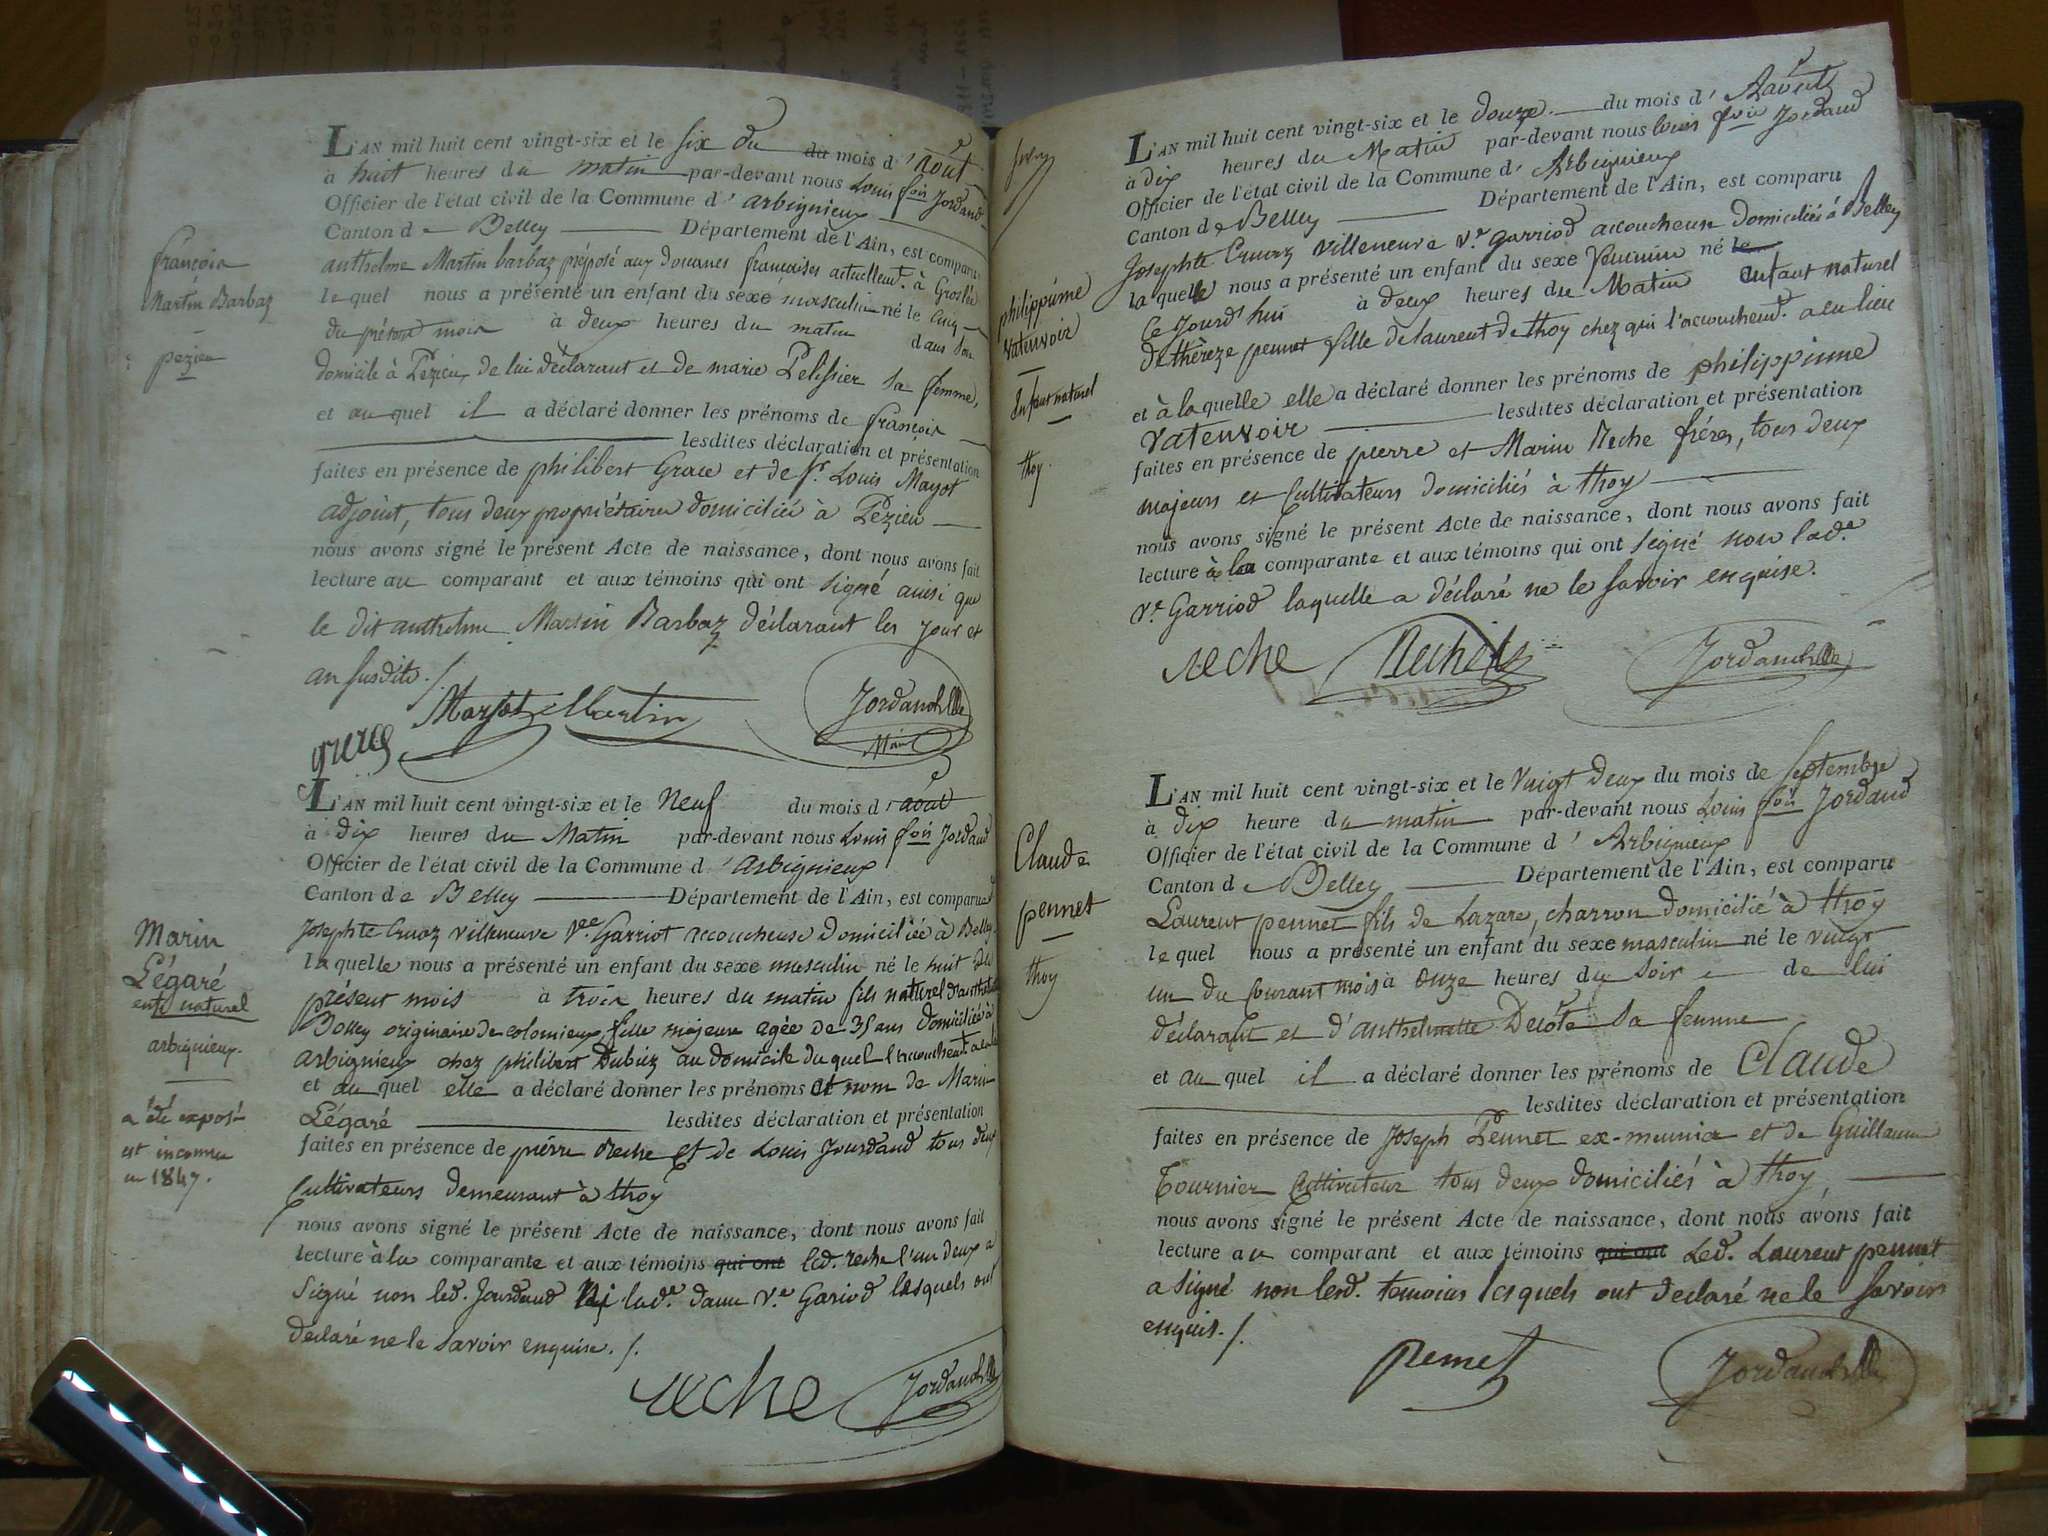 L'AN mil huit cent vingt-six et le six du du mois d'Aout
à huit heures du matin par-devant nous Louis fois Jordand
Officier de l'état civil de la Commune d'arbignieux
Canton de Belley Département de l'Ain, est comparu
anthelme Martin barbaz préposé aux douanes françaises actuellent. à Groslée
lequel nous a présenté un enfant du sexe masculin né le cinq
du présent mois à deux heures du matin dans son
domicile à Pézieu, de lui déclarant et de marie Pelissier sa femme,
et au quel il a déclaré donner les prénoms de françois
lesdites déclaration et présentation
faites en présence de philibert Grace et de fs. Louis Mayot
adjoint, tous deux propriétaires domiciliés à Pézieu
nous avons signé le présent Acte de naissance, dont nous avons fait
lecture au comparant et aux témoins qui ont signé ainsi que
le dit anthelme Martin Barbaz déclarant les jour et
an susdits ./.
françois
Martin Barbaz
pezieu
Martin
Jordand
Maire
L'AN mil huit cent vingt-six et le Neuf du mois d'aout
à dix heures du Matin par-devant nous Louis fois Jordand
Officier de l'état civil de la Commune d'arbignieux
Canton de Belley Département de l'Ain, est comparue
Josephte Cruaz villeneuve Vee. Garriot accoucheuse domiciliée à Belley
laquelle nous a présenté un enfant du sexe masculin né le huit du
présent mois à trois heures du matin fils naturel d'anthel
Bolley originaire de colomieux fille majeure agée de 35 ans domiciliée à
arbignieux chez philibert Dubiez au domicile du quel l'accouchent. a eu
et au quel elle a déclaré donner les prénoms et nom de Marin
Légaré lesdites déclaration et présentation
faites en présence de pierre reche et de Louis Jourdand tous deux
Cultivateurs demeurant à thoy
nous avons signé le présent Acte de naissance, dont nous avons fait
lecture à la comparante et aux témoins qui ont led. reche l'un deux a
Signé non led. Jourdand Ni lade. dame Ve. Gariod lesquels ont
déclaré ne le savoir enquise. ./.
Marin
Légaré
ent. naturel
arbignieux.
a été exposé
est inconnu
en 1847.
reche
Jordand
L'AN mil huit cent vingt-six et le douze du mois d'Aout
à dix heures du Matin par-devant nous Louis fois Jordand
Officier de l'état civil de la Commune d'Arbignieux
Canton de Belley Département de l'Ain, est comparu
Josephte Cruaz villeneuve Ve. garriod accoucheuse domiciliée à Belley
laquelle nous a présenté un enfant du sexe féminin né le
Ce jourd'hui à deux heures du Matin enfant naturel
de thèreze pennet fille de laurent de thoy chez qui l'accouchent. a eu lieu
et à laquelle elle a déclaré donner les prénoms de philippinne
Vatenvoir lesdites déclaration et présentation
faites en présence de pierre et Marin Reche frères, tous deux
majeurs et Cultivateurs domiciliés à thoy
nous avons signé le présent Acte de naissance, dont nous avons fait
lecture à la comparante et aux témoins qui ont signé non lade.
Ve. Garriod laquelle a déclaré ne le savoir enquise.
philippinne
Vatenvoir
enfant naturel
thoy.
reche
Reche
Jordand
L'AN mil huit cent vingt-six et le Vuigt deux du mois de Septembre
à dix heure du matin par-devant nous Louis fois Jordand
Officier de l'état civil de la Commune d'Arbignieux
Canton de Belley Département de l'Ain, est comparu
Laurent pennet fils de Lazare, charron domicilié à thoy
lequel nous a présenté un enfant du sexe masculin né le vuigt
un du courant mois à onze heures du soir de lui
déclarant et d'anthelmette Decôte sa femme
et au quel il a déclaré donner les prénoms de Claude
lesdites déclaration et présentation
faites en présence de Joseph Pennet ex-meunier et de Guillaume
Tournier Cultivateur tous deux domiciliés à thoy
nous avons signé le présent Acte de naissance, dont nous avons fait
lecture au comparant et aux témoins qui ont Led. Laurent pennet
a signé non lesd. temoins lesquels ont déclaré ne le savoir
enquis. ./.
Claude
pennet
thoy
Penet
Jordand